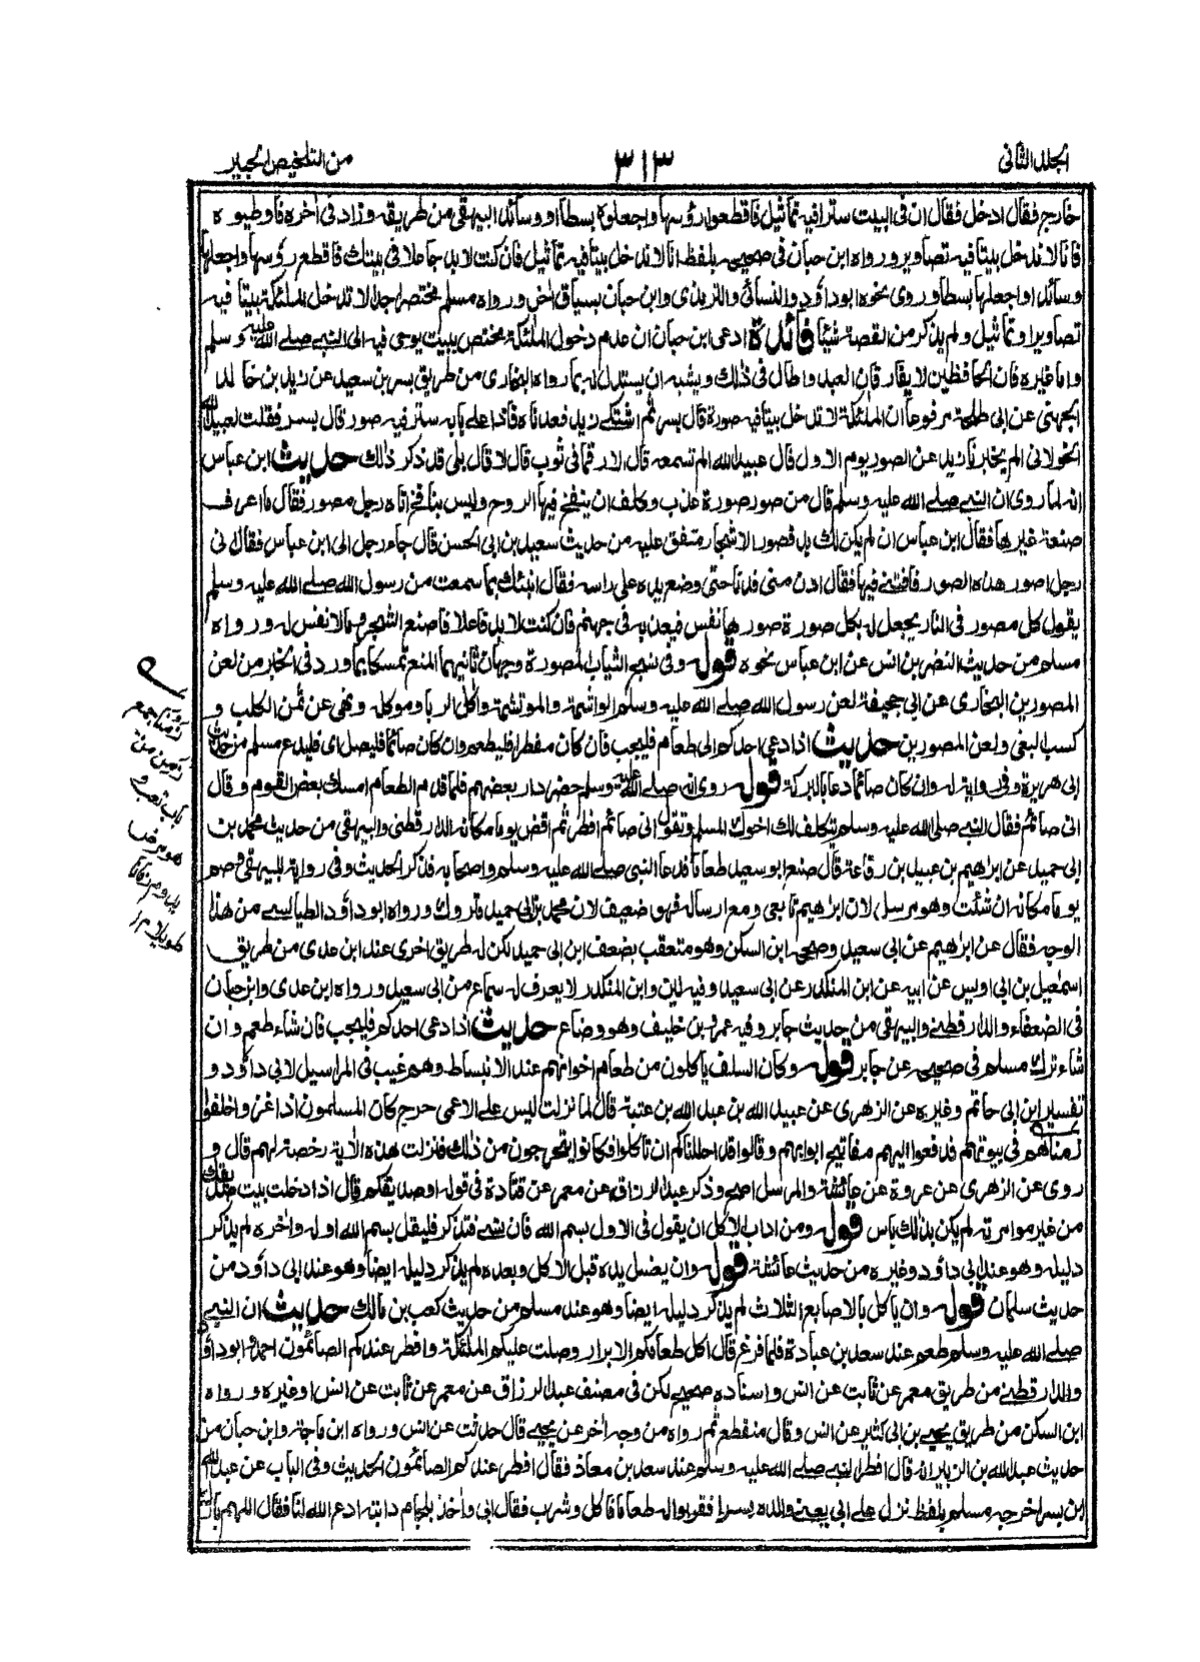 الجلد الثانی
۳۱۳
من التلخیص الحبیر
خارج فقال ادخل فقال ان فی البیت سترا فیه تماثیل فاقطعوا رؤسها واجعلوه بسطا او وسائد البیهقی من طریقه وزاد فی اخره فاوطیوه
فانا لا ندخل بیتا فیه تصاویر ورواه ابن حبان فی صحیحه بلفظ انا لا ندخل بیتا فیه تماثیل فان کنت لا بد جاعلا فی بیتك فاقطع رؤسها واجعلها
وسائد او اجعلها بسطا وروی نحوه ابوداؤد والنسائی والترمذی وابن حبان بسیاق اٰخر ورواه مسلم مختصرا جدا لا تدخل الملئکة بیتا فیه
تصاویر او تماثیل ولم یذکر من القصة شیئا فائدة ادعی ابن حبان ان عدم دخول الملئکة مختص ببیت یوحی فیه الی النبی صلے الله علیه وسلم
واما غیره فان الحافظین لا یفارقان العبد واطال فی ذلك ویشبه ان یستدل له بما رواه البخاری من طریق بسر بن سعید عن زید بن خالد
الجهنی عن ابی طلحة مرفوعا ان الملئکة لا تدخل بیتا فیه صورة قال بسر ثم اشتکے زید فعدناه فاذا علے بابه ستر فیه صور قال بسر فقلت لعبید الله
الخولانی الم یخبرنا زید عن الصور یوم الاول قال عبید الله الم تسمعه قال الا رقما فی ثوب قال لا قال بلی قد ذکر ذٰلك حدیث ابن عباس
انه لما روی ان النبی صلے الله علیه وسلم قال من صور صورة عذب وکلف ان ینفخ فیها الروح ولیس بنافخ اتاه رجل مصور فقال ما اعرف
صنعة غیرها فقال ابن عباس ان لم یکن لك بد فصور الاشجار متفق علیه من حدیث سعید بن ابی الحسن قال جاء رجل الی ابن عباس فقال انی
رجل اصور هذه الصور فافتنے فیها فقال ادن منی فدنا حتی وضع یده علی راسه فقال انبئك بما سمعت من رسول الله صلے الله علیه وسلم
یقول کل مصور فی النار یجعل له بکل صورة صورها نفس فیعذبه فی جهنم فان کنت لا بد فاعلا فاصنع الشجر وما لا نفس له ورواه
مسلم من حدیث النضر بن انس عن ابن عباس نحوه قوله وفی نسج الثیاب المصورة وجهان ثانیهما المنع تمسکا بما ورد فی الخبر من لعن
المصورین البخاری عن ابی جحیفة لعن رسول الله صلے الله علیه وسلم الواشمة والموتشمة واٰکل الربا وموکله ونهی عن ثمن الکلب و
کسب البغی ولعن المصورین حدیث اذا دعی احدکم الی طعام فلیجب فان کان مفطرا فلیطعم وان کان صائما فلیصل ای فلیدع مسلم من حدیث
ابی هریرة وفی روایة له وان کان صائما دعا بالبرکة قوله روی انه صلے الله علیه وسلم حضر دار بعضهم فلما قدم الطعام امسك بعض القوم وقال
انی صائم فقال النبی صلی الله علیه وسلم یتکلف لك اخوك المسلم وتقول انی صائم افطر ثم اقض یوما مکانه الدارقطنی والبیهقی من حدیث محمد بن
ابی حمید عن ابرٰهیم بن عبید بن رفاعة قال صنع ابو سعید طعاما فدعا النبی صلی الله علیه وسلم واصحابه فذکر الحدیث وفی روایة للبیهقی وصم
یوما مکانه ان شئت وهو مرسل لان ابرٰهیم تابعی ومع ارساله فهو ضعیف لان محمد بن ابی حمید متروك ورواه ابوداؤد الطیالسے من هذا
الوجه فقال عن ابرٰهیم عن ابی سعید وصححه ابن السکن وهو متعقب بضعف ابن ابی حمید لکن له طریق اخری عند ابن عدی من طریق
اسمٰعیل بن ابی اویس عن ابیه عن ابن المنکدر عن ابی سعید وفیه لین وابن المنکدر لا یعرف له سماع من ابی سعید ورواه ابن عدی وابن حبان
فی الضعفاء والدارقطنے والبیهقی من حدیث جابر وفیه عمرو بن خلیف وهو وضاع حدیث اذا دعی احدکم فلیجب فان شاء طعم وان
شاء ترك مسلم فی صحیحه عن جابر قوله وکان السلف یاکلون من طعام اخوانهم عند الانبساط وهم غیب فی المراسیل لابی داؤد و
تفسیر ابن ابی حاتم وغیره عن الزهری عن عبید الله بن عبد الله بن عتبة قال لما نزلت لیس علے الاعمی حرج کان المسلمون اذا غزوا خلفوا
زمناهم فی بیوتهم فدفعوا الیهم مفاتیح ابوابهم وقالوا قد احللناکم ان تاکلوا فکانوا یتحرجون من ذلك فنزلت هذه الاٰیة رخصة لهم قال و
روی عن الزهری عن عروة عن عائشة والمرسل اصح وذکر عبد الرزاق عن معمر عن قتادة فی قوله او صدیقکم قال اذا دخلت بیت صدیقك
من غیر موامرته لم یکن بذٰلك باس قوله ومن اداب الاکل ان یقول فی الاول بسم الله فان نسے فتذکر فلیقل بسم الله اوله واٰخره لم یذکر
دلیله وهو عند ابی داؤد وغیره من حدیث عائشة قوله وان یغسل یده قبل الاکل وبعده لم یذکر دلیله ایضا وهو عند ابی داؤد من
حدیث سلمان قوله وان یاکل بالاصابع الثلاث لم یذکر دلیله ایضا وهو عند مسلم من حدیث کعب بن مالك حدیث ان النبی
صلے الله علیه وسلم طعم عند سعد بن عبادة فلما فرغ قال اکل طعامکم الابرار وصلت علیکم الملئکة وافطر عندکم الصائمون احمد وابوداؤد
والدارقطنے من طریق معمر عن ثابت عن انس واسناده صحیح لکن فی مصنف عبد الرزاق عن معمر عن ثابت عن انس او غیره ورواه
ابن السکن من طریق یحیے بن ابی کثیر عن انس وقال منقطع ثم رواه من وجه اٰخر عن یحیے قال حدثت عن انس ورواه ابن ماجة وابن حبان من
حدیث عبد الله بن الزبیر انه قال افطر النبی صلے الله علیه وسلم عند سعد بن معاذ فقال افطر عندکم الصائمون الحدیث وفی الباب عن عبد الله
ابن بسر اخرجه مسلم بلفظ نزل علے ابی یعنے والده بسرا فقربوا له طعاما فاکل وشرب فقال ابی واخذ بلجام دابته ادع الله لنا فقال اللهم بارك